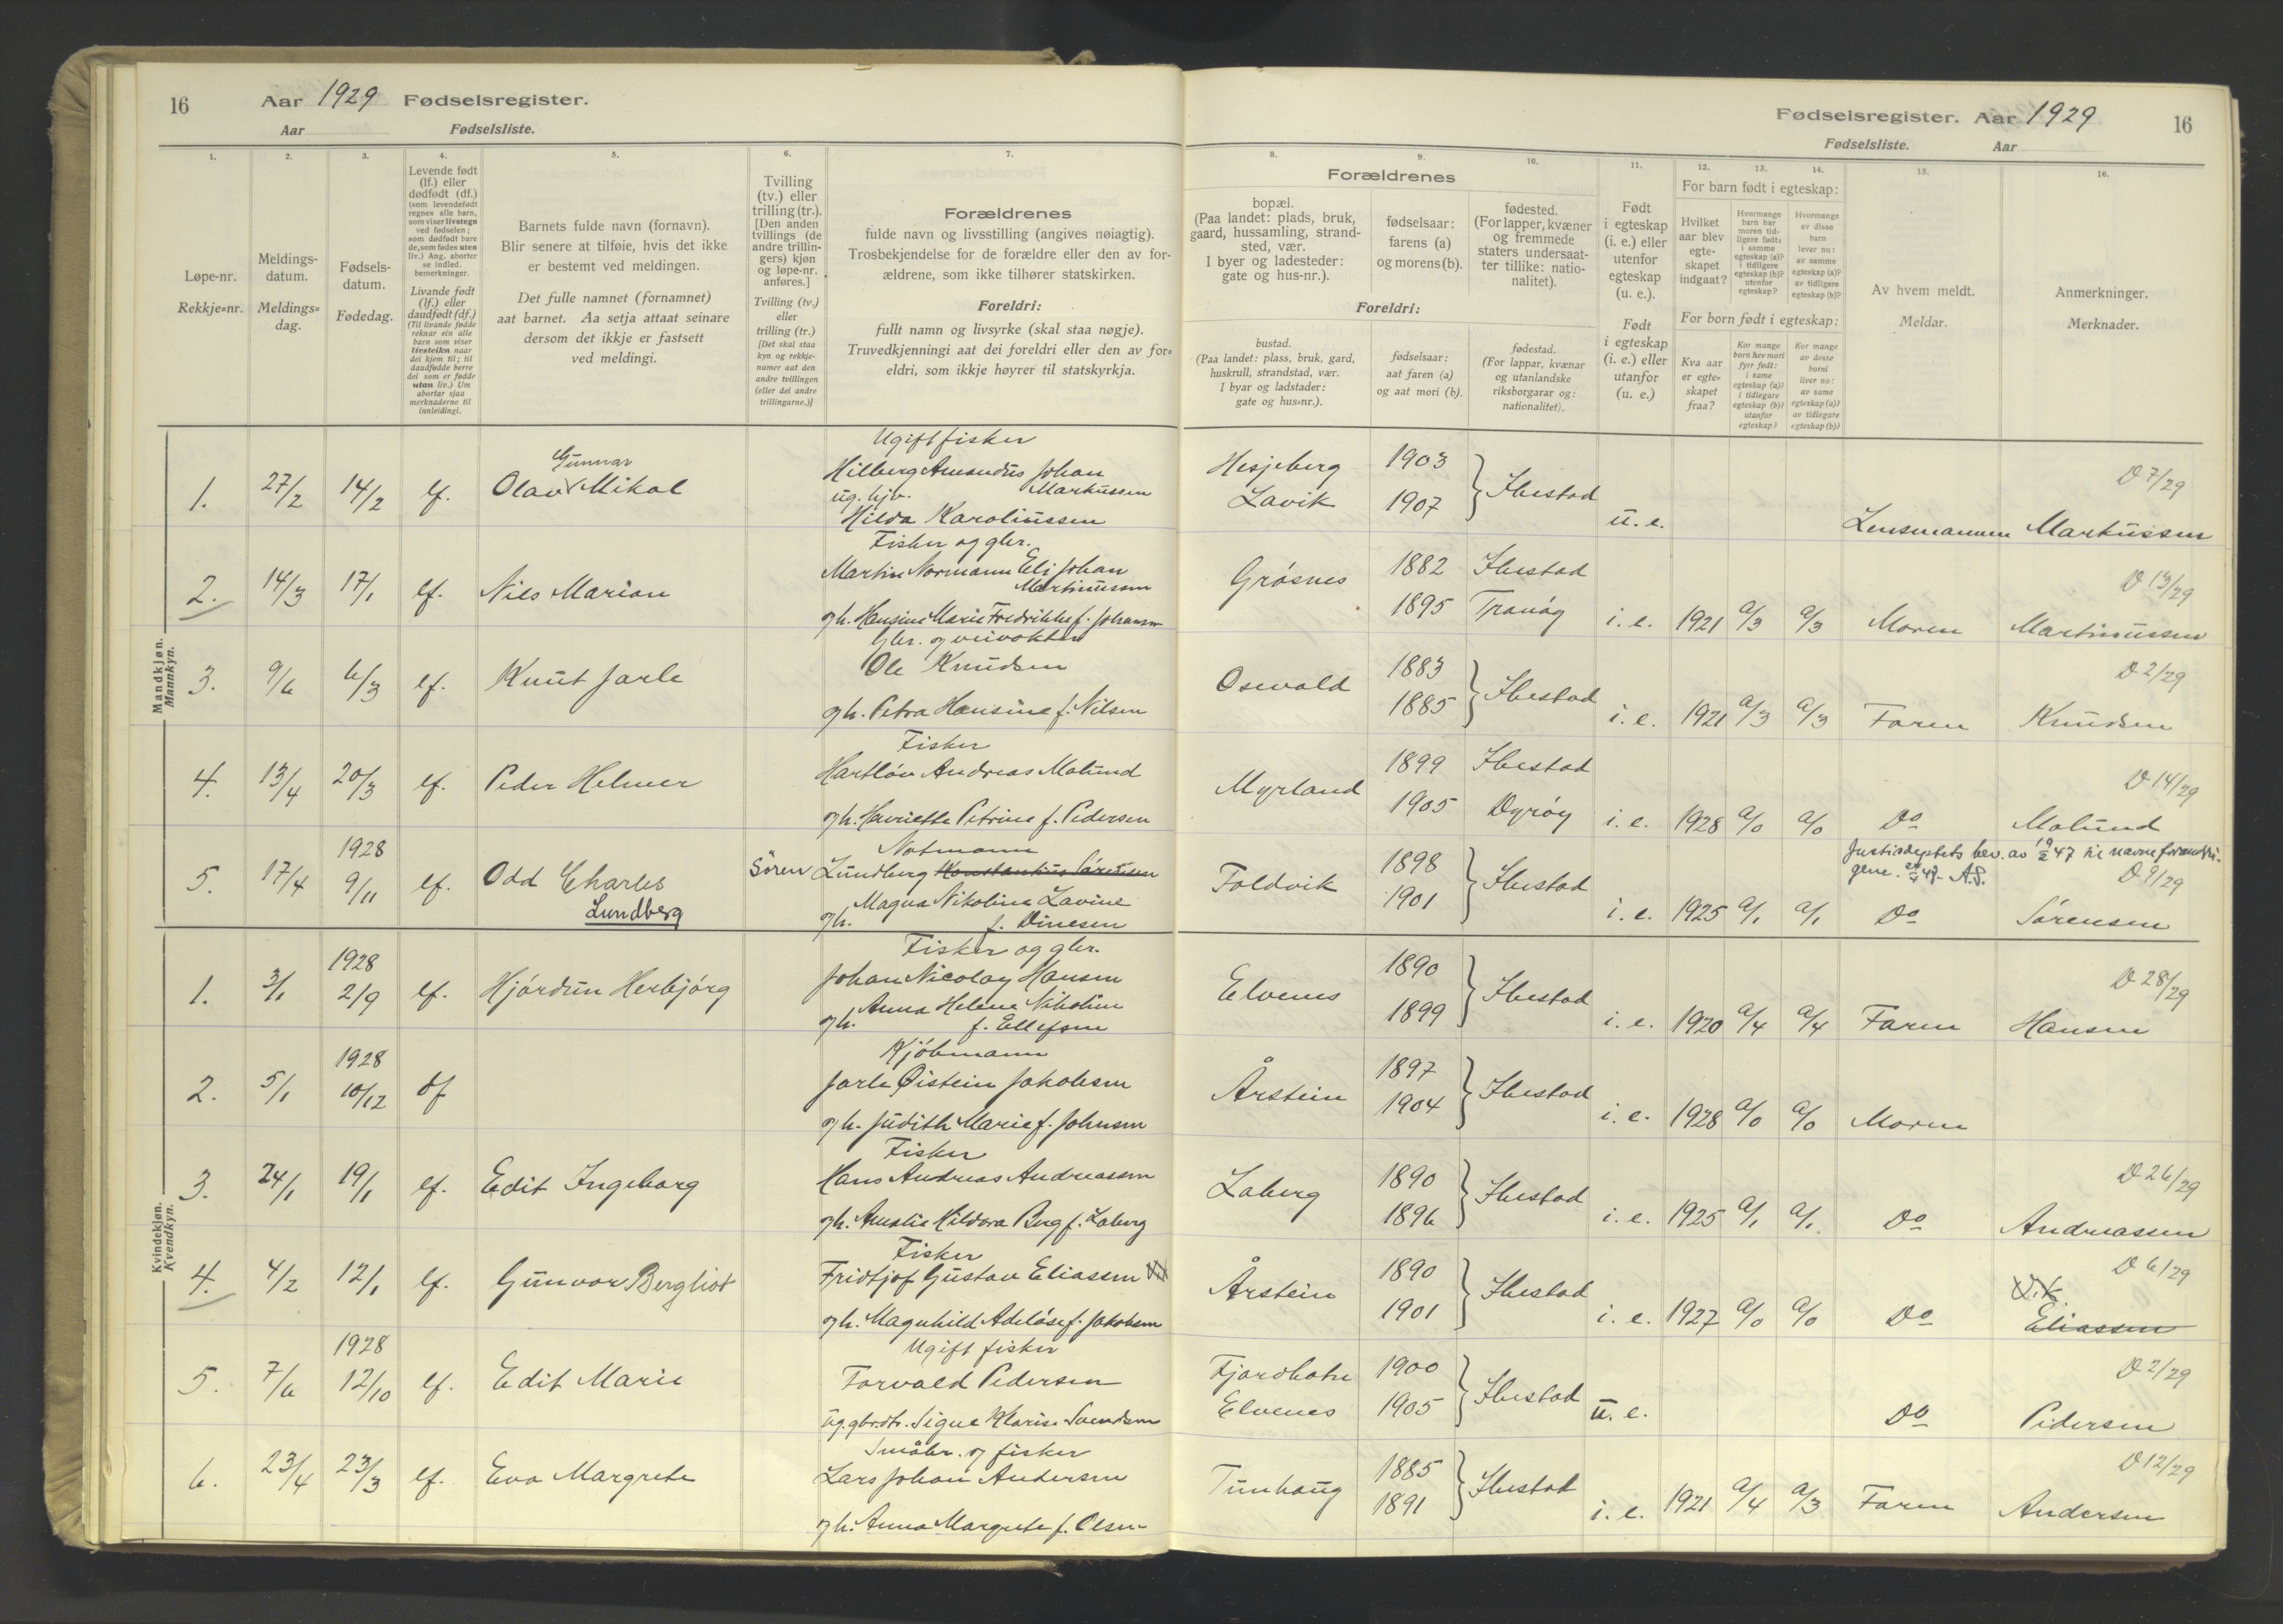 16 Aar 1929 Fødselsregister.
Aar Fødselsliste.
Fødselsregister. Aar 1929 16
Fødselsliste. Aar
1. 2. 3. 4. 5. 6. 7. 8. 9. 10. 11. 12. 13. 14. 15. 16.
Løpe-nr.
Rekkje=nr.
Meldings-
datum.
Meldings=
dag.
Fødsels-
datum.
Fødedag.
Levende født
(lf.) eller
dødfødt (df.)
(som levendefødt
regnes alle barn,
som viser livstegn
ved fødselen;
som dødfødt bare
de, som fødes uten
liv.) Ang. aborter
se indled.
bemerkninger.
Livande født
(lf.) eller
daudfødt (df.)
(Til livande fødde
reknar ein alle
barn som viser
livsteikn naar
dei kjem til; til
daudfødde berre
dei som er fødde
utan liv.) Um
abortar sjaa
merknaderne til
innleidingi.
Barnets fulde navn (fornavn).
Blir senere at tilføie, hvis det ikke
er bestemt ved meldingen.
Det fulle namnet (fornamnet)
aat barnet. Aa setja attaat seinare
dersom det ikkje er fastsett
ved meldingi.
Tvilling
(tv.) eller
trilling (tr.).
[Den anden
tvillings (de
andre trillin-
gers) kjøn
og løpe-nr.
anføres.]
Tvilling (tv.)
eller
trilling (tr.)
[Det skal staa
kyn og rekkje-
numer aat den
andre tvillingen
(eller dei andre
trillingarne.)]
Forældrenes
fulde navn og livsstilling (angives nøiagtig).
Trosbekjendelse for de forældre eller den av for-
ældrene, som ikke tilhører statskirken.
Foreldri:
fullt namn og livsyrke (skal staa nøgje).
Truvedkjenningi aat dei foreldri eller den av for=
eldri, som ikkje høyrer til statskyrkja.
Forældrenes
bopæl.
(Paa landet: plads, bruk,
gaard, hussamling, strand-
sted, vær.
I byer og ladesteder:
gate og hus-nr.).
fødselsaar:
farens (a)
og morens (b).
fødested.
(For lapper, kvæner
og fremmede
staters undersaat-
ter tillike: natio-
nalitet).
Foreldri:
bustad.
(Paa landet: plass, bruk, gard,
huskrull, strandstad, vær.
I byar og ladstader:
gate og hus=nr.).
fødselsaar:
aat faren (a)
og aat mori (b).
fødestad.
(For lappar, kvænar
og utanlandske
riksborgarar og:
nationalitet).
Født
i egteskap
(i. e.) eller
utenfor
egteskap
(u. e.).
Født
i egteskap
(i. e.) eller
utanfor
(u. e.)
For barn født i egteskap:
Hvilket
aar blev
egte-
skapet
indgaat?
Hvormange
barn har
moren tid-
ligere født:
i samme
egteskap (a)?
i tidligere
egteskap (b)?
utenfor
egteskap?
Hvormange
av disse
barn
lever nu:
av samme
egteskap (a)?
av tidligere
egteskap (b)?
For born født i egteskap:
Kva aar
er egte=
skapet
fraa?
Kor mange
born hev mori
fyrr født:
i same
egteskap (a)?
i tidlegare
egteskap (b)?
utanfor
egteskap?
Kor mange
av desse
borni
liver no:
av same
egteskap (a)?
av tidlegare
egteskap (b)?
Av hvem meldt.
Meldar.
Anmerkninger.
Merknader.
Mandkjøn.
Mannkyn.
Ugift fisker
1. 27/2 14/2 lf. Olav Gunnar Mikal Hilberg Amandus Johan Markussen Hesjeberg 1903 Ibestad D 7/29
ug. hjv. Hilda Karoliussen Lavik 1907 u. e. Lensmannen Markussen
Fisker og gbr.
2. 14/3 17/1 lf. Nils Marian Martin Normann Eli Johan Martinussen Gråsnes 1882 Ibestad D 13/29
gh. Hansine Marie Fredrikke f. Johansen 1895 Tranøy i. e. 1921 a/3 a/3 Moren Martinussen
Gbr. og veivokter
3. 9/6 6/3 lf. Knut Jarle Ole Knudsen Osevold 1883 Ibestad D 2/29
gh. Petra Hansine f. Nilsen 1885 i. e. 1921 a/3 a/3 Faren Knudsen
Fisker
4. 13/4 20/3 lf. Peder Helmer Hartløv Andreas Molund Myrland 1899 Ibestad D 14/29
gh. Henriette Petrine f. Pedersen 1905 Dyrøy i. e. 1928 a/0 a/0 Do Molund
1928 Notmann Justisdeptets bev. av 19/2 47 til navneforandri-
gene. A.S.
5. 17/4 9/11 lf. Odd Charles Søren Lundberg Konstantius Sørensen Foldvik 1898 Ibestad D 9/29
Lundberg gh. Magna Nikoline Lavine f. Dinesen 1901 i. e. 1925 a/1 a/1 Do Sørensen
Kvindekjøn.
Kvendkyn.
1928 Fisker og gbr.
1. 3/1 2/9 lf. Hjørdun Herbjørg Johan Nicolay Hansen Elvenes 1890 Ibestad D 28/29
gh. Anna Helene Nikoline f. Ellefsen 1899 i. e. 1920 a/4 a/4 Faren Hansen
1928 Kjøbmann
2. 5/1 10/12 df Jarle Øistein Jakobsen Årstein 1897 Ibestad
gh. Judith Marie f. Johnsen 1904 i. e. 1928 a/0 a/0 Moren
Fisker
3. 24/1 19/1 lf. Edit Ingeborg Hans Andreas Andreassen Laberg 1890 Ibestad D 26/29
gh. Amalie Hildora Berg f. Laberg 1896 i. e. 1925 a/1 a/1. Do Andreassen
Fisker
4. 4/2 12/1 lf. Gunvor Bergliot Fridtjof Gustav Eliassen Årstein 1890 Ibestad D 6/29
gh. Magnhild Adeløse f. Jakobsen 1901 i. e. 1927 a/0 a/0 Do Eliassen
1928 Ugift fisker
5. 7/6 12/10 lf. Edit Marie Torvald Pedersen Fjordbotn 1900 Ibestad D 2/29
ug. gbrdtr. Signe Klarise Svendsen Elvenes 1905 u. e. Do Pedersen
Småbr. og fisker
6. 23/4 23/3 lf. Eva Margrete Lars Johan Andersen Tunhaug 1885 Ibestad D 12/29
gh. Anna Margrete f. Olsen 1891 i. e. 1921 a/4 a/3 Faren Andersen